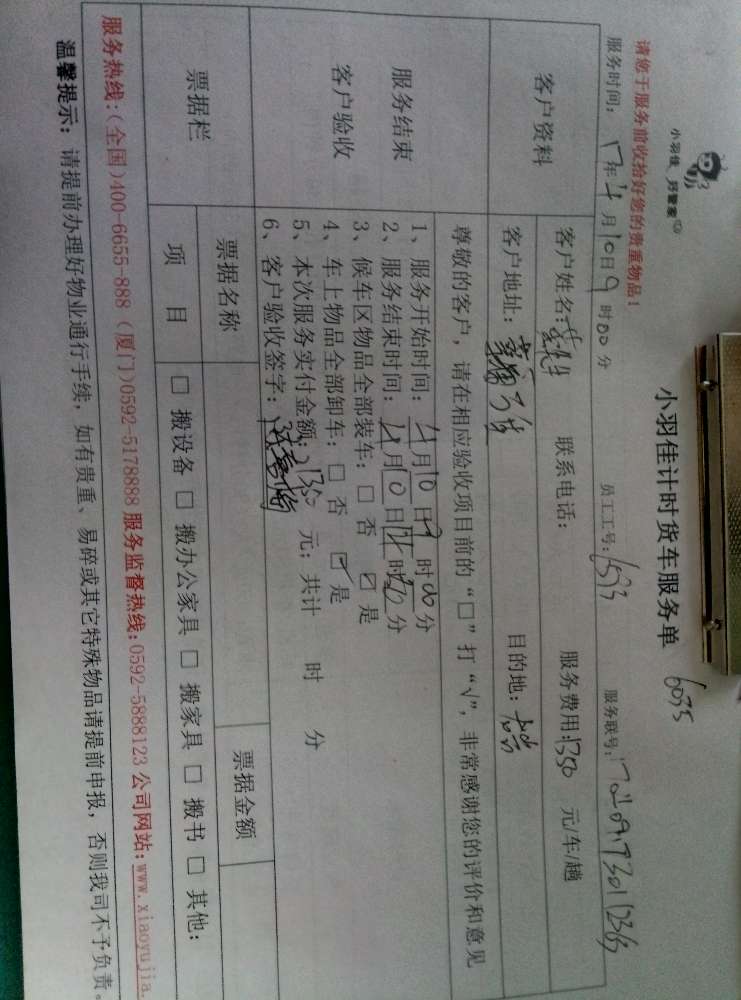 小羽佳 好管家
小羽佳计时货车服务单
6035
请您于服务前收拾好您的贵重物品!
服务时间: 17年4月10日9时00分 员工工号: 服务联号:
客户资料
客户姓名: 联系电话: 服务费用:1350 元/车/趟
客户地址: 目的地:
服务结束
客户验收
尊敬的客户,请在相应验收项目前的“□”打“√”,非常感谢您的评价和意见
1、服务开始时间: 4月10日9时00分
2、服务结束时间: 4月10日 时 分
3、候车区物品全部装车: □ 否 ☑ 是
4、车上物品全部卸车: □ 否 ☑ 是
5、本次服务实付金额: 1350 元; 共计 时 分
6、客户验收签字:
票据栏
票据名称 票据金额
项 目 □ 搬设备 □ 搬办公家具 □ 搬家具 □ 搬书 □ 其他:
服务热线:(全国)400-6655-888(厦门)0592-5178888 服务监督热线:0592-5888123 公司网站:www.xiaoyujia.
温馨提示: 请提前办理好物业通行手续,如有贵重、易碎或其它特殊物品请提前申报,否则我司不予负责。